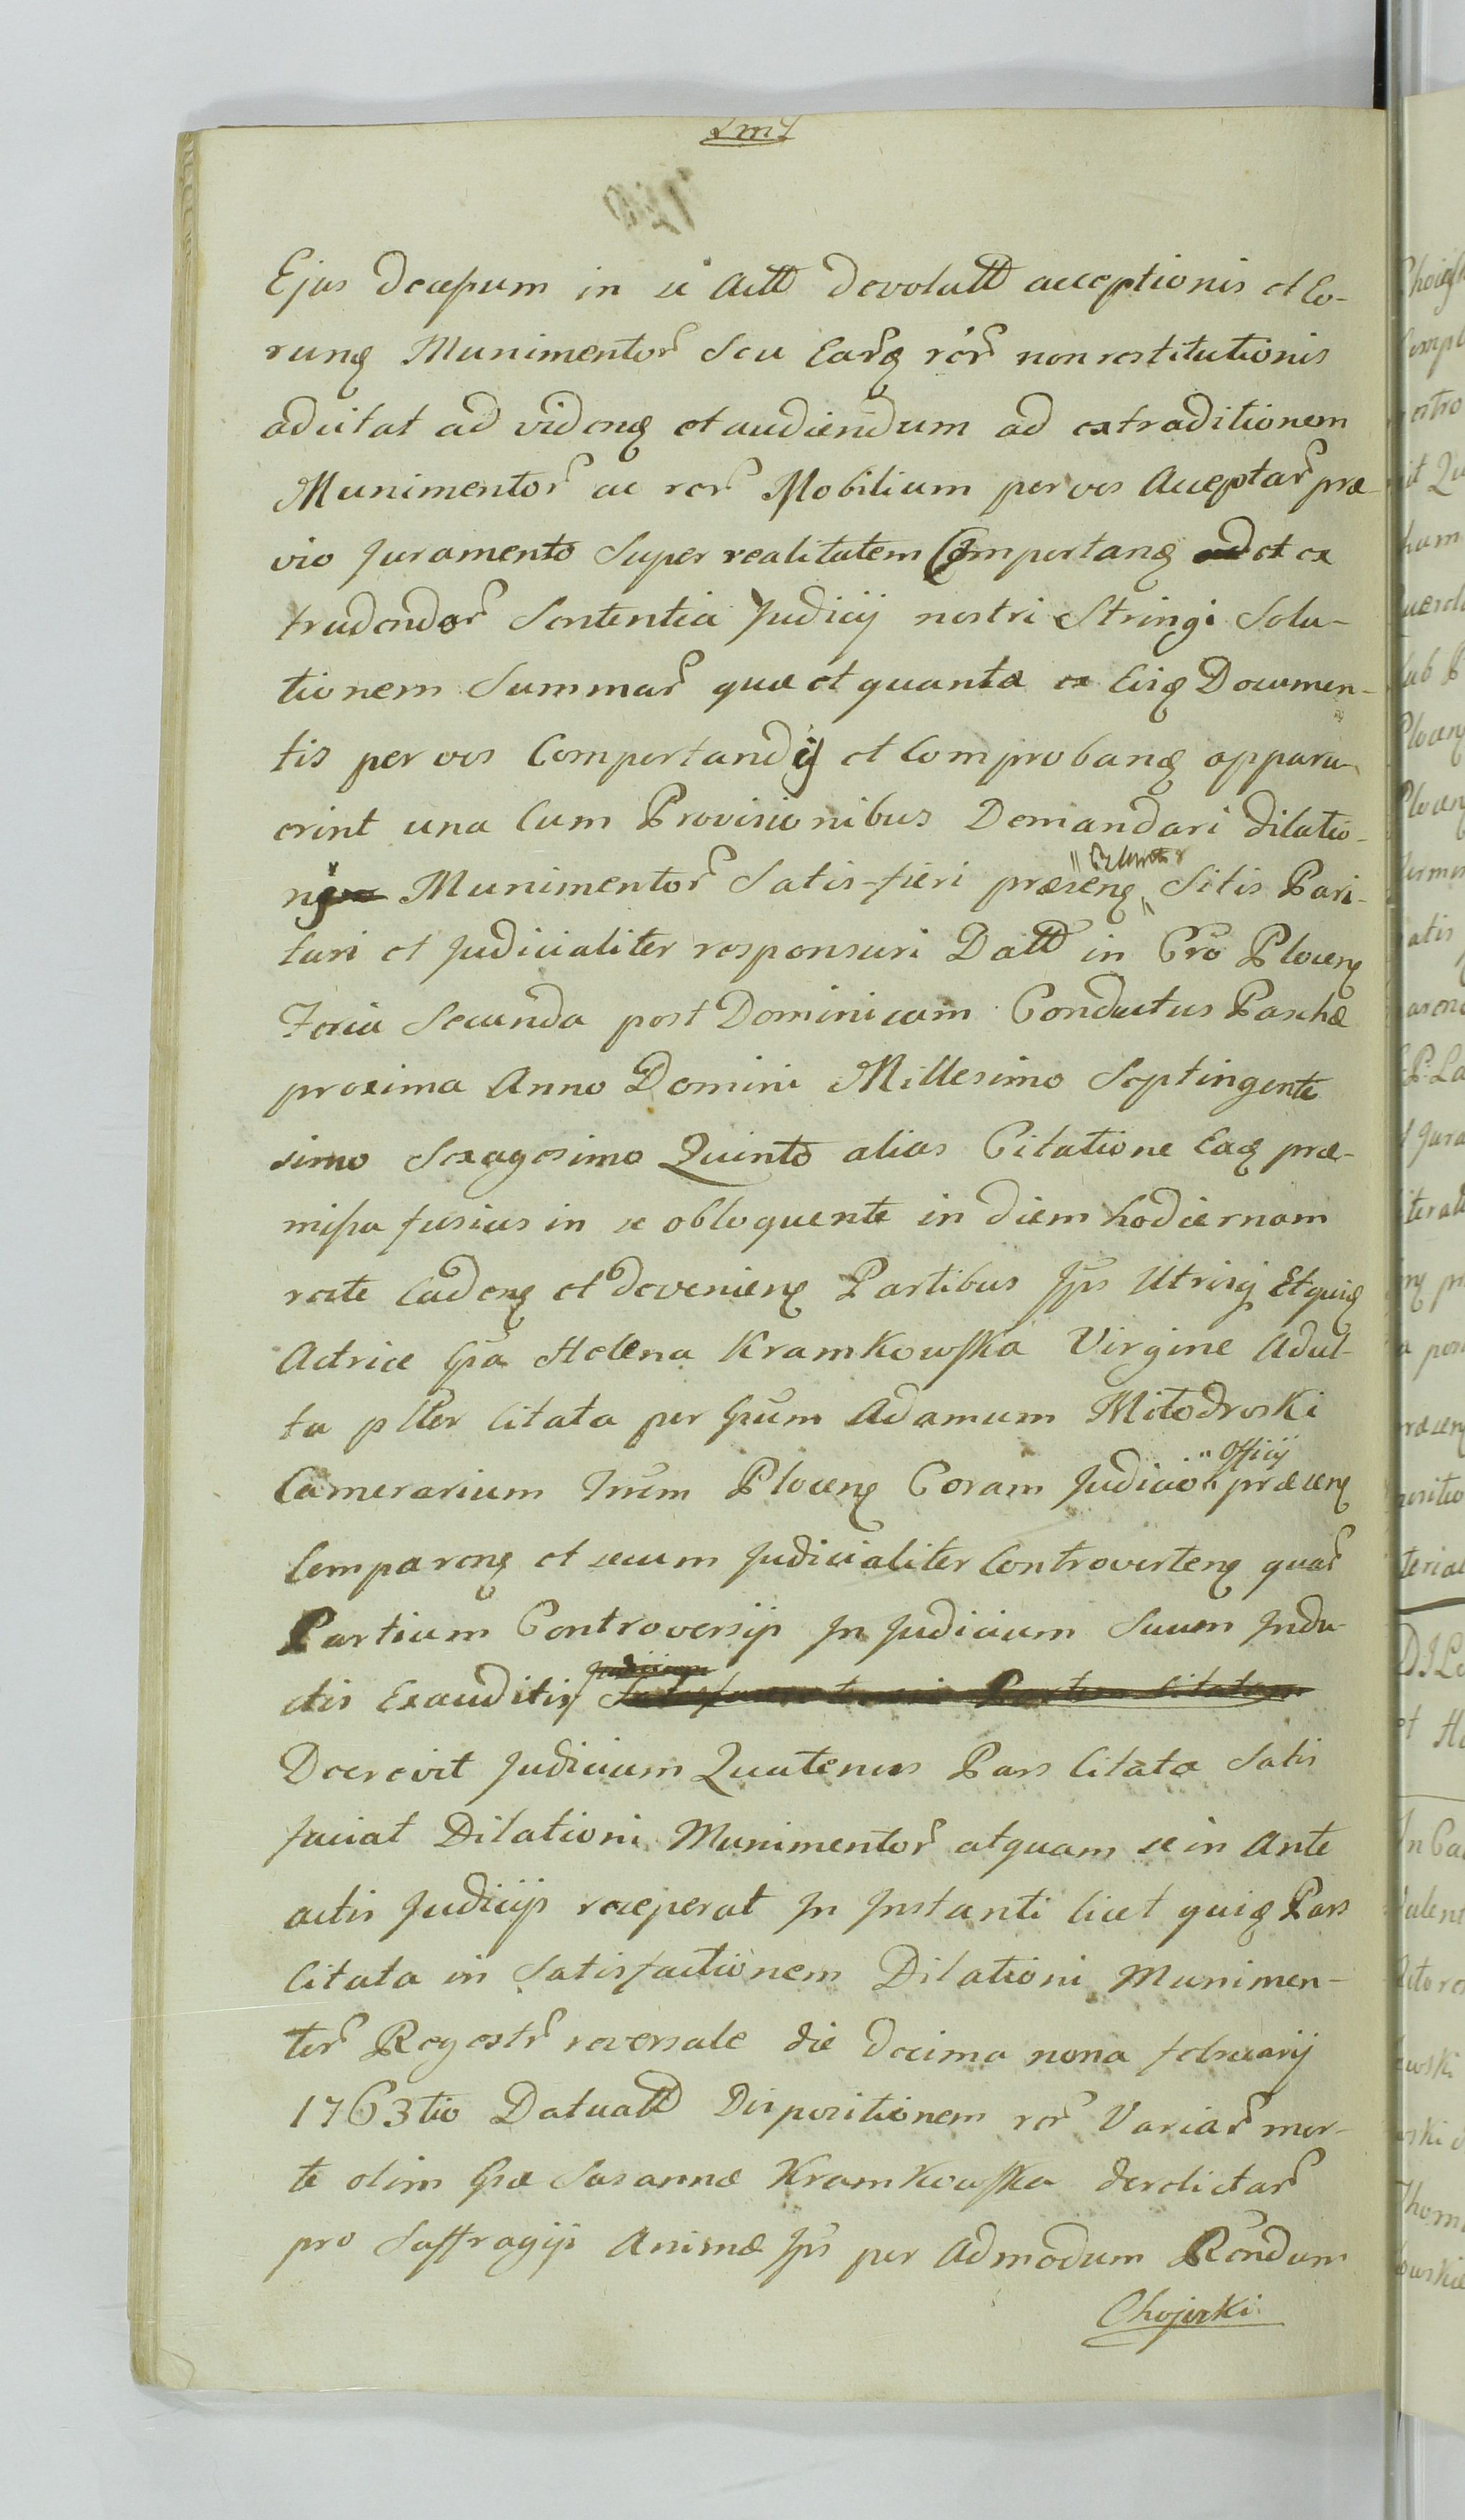 Ejus decessum in se Actt devolutt acceptionis et Eo-
runq Munimentor seu Earq rer non restitutionis
adcitat ad videnq et audiendum ad extraditionem
Munimentor ac rer Mobilium per vos Acceptar præ-
vio Juramento super realitatem Comportanq et ex
tradendor Sententia Judicij nostri Stringi Solu-
tionem Summar quæ et quantæ ex Eisq Documen-
tis per vos Comportandis et Comprobanq apparu-
erint una Cum Provisionibus Demandari dilatio-
ni Munimentor Satis-fieri præsenq Sitis Pari-
turi et Judicialiter responsuri Datt in Cro Plocenq
Feria Secunda post Dominicam Conductus Paschæ
proxima Anno Domini Millesimo Septingente
simo Sexagesimo Quinto alias Citatione Eaq præ-
missa fusius in se obloquente in diem hodiernam
recte Cadenq et devenienq Partibus Ipis Utrisq Etquiq
Actrice Gsa Helena Kramkowska Virgine Adul-
ta plter Citata per Gsum Adamum Mitodroski
Camerarium Trrem Plocenq Coram Judicio " Officij præsenq
Comparenq et secum Judicialiter Controvertenq quar
Partium Controversijs In Judicium Suum Indu-
ctis Exauditis
Decrevit Judicium Quatenus Pars Citata Satis
faciat Dilationi Munimentor atquam se in Ante
actis Judicijs receperat In Instanti licet quiq Pars
Citata in Satisfactionem Dilationi Munimen-
tor Regestr reversale die decima nona februarij
1763tio Datuatt Dispositionem rer Variar mor-
te olim Gsæ Susannæ Kramkowska derelictar
pro Suffragijs Animæ Ipis per Admodum Rendum
Chojecki